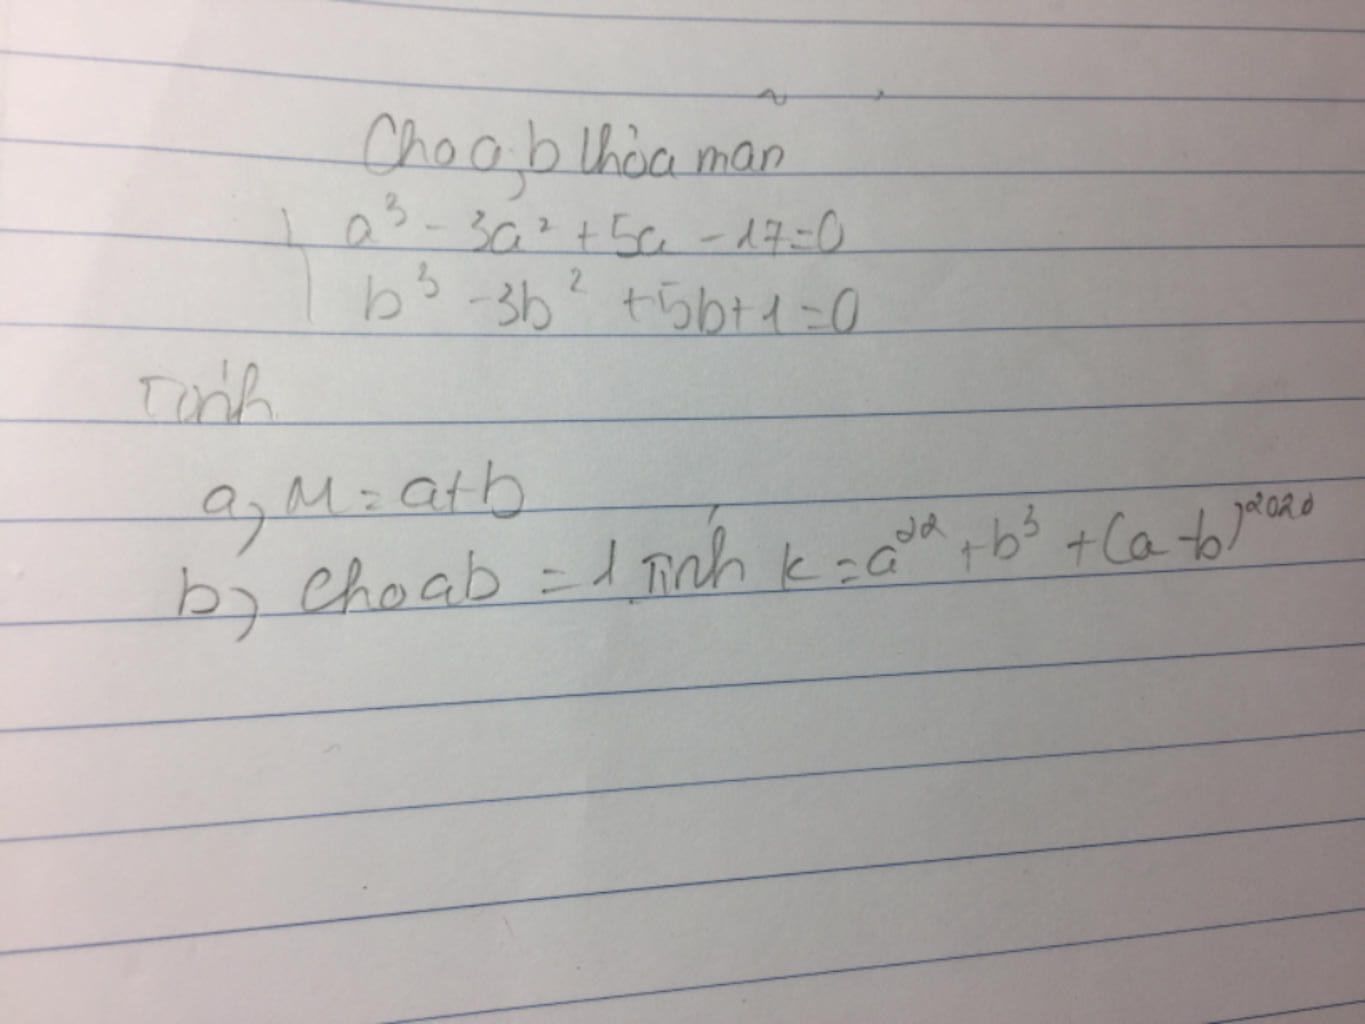 Cho a,b thỏa mãn
a³ - 3a² + 5a - 17 = 0
b³ - 3b² + 5b + 1 = 0
Tính
a, M = a+b
b, Cho ab = 1 Tính K = a²² + b³ + (a - b)²⁰²⁰